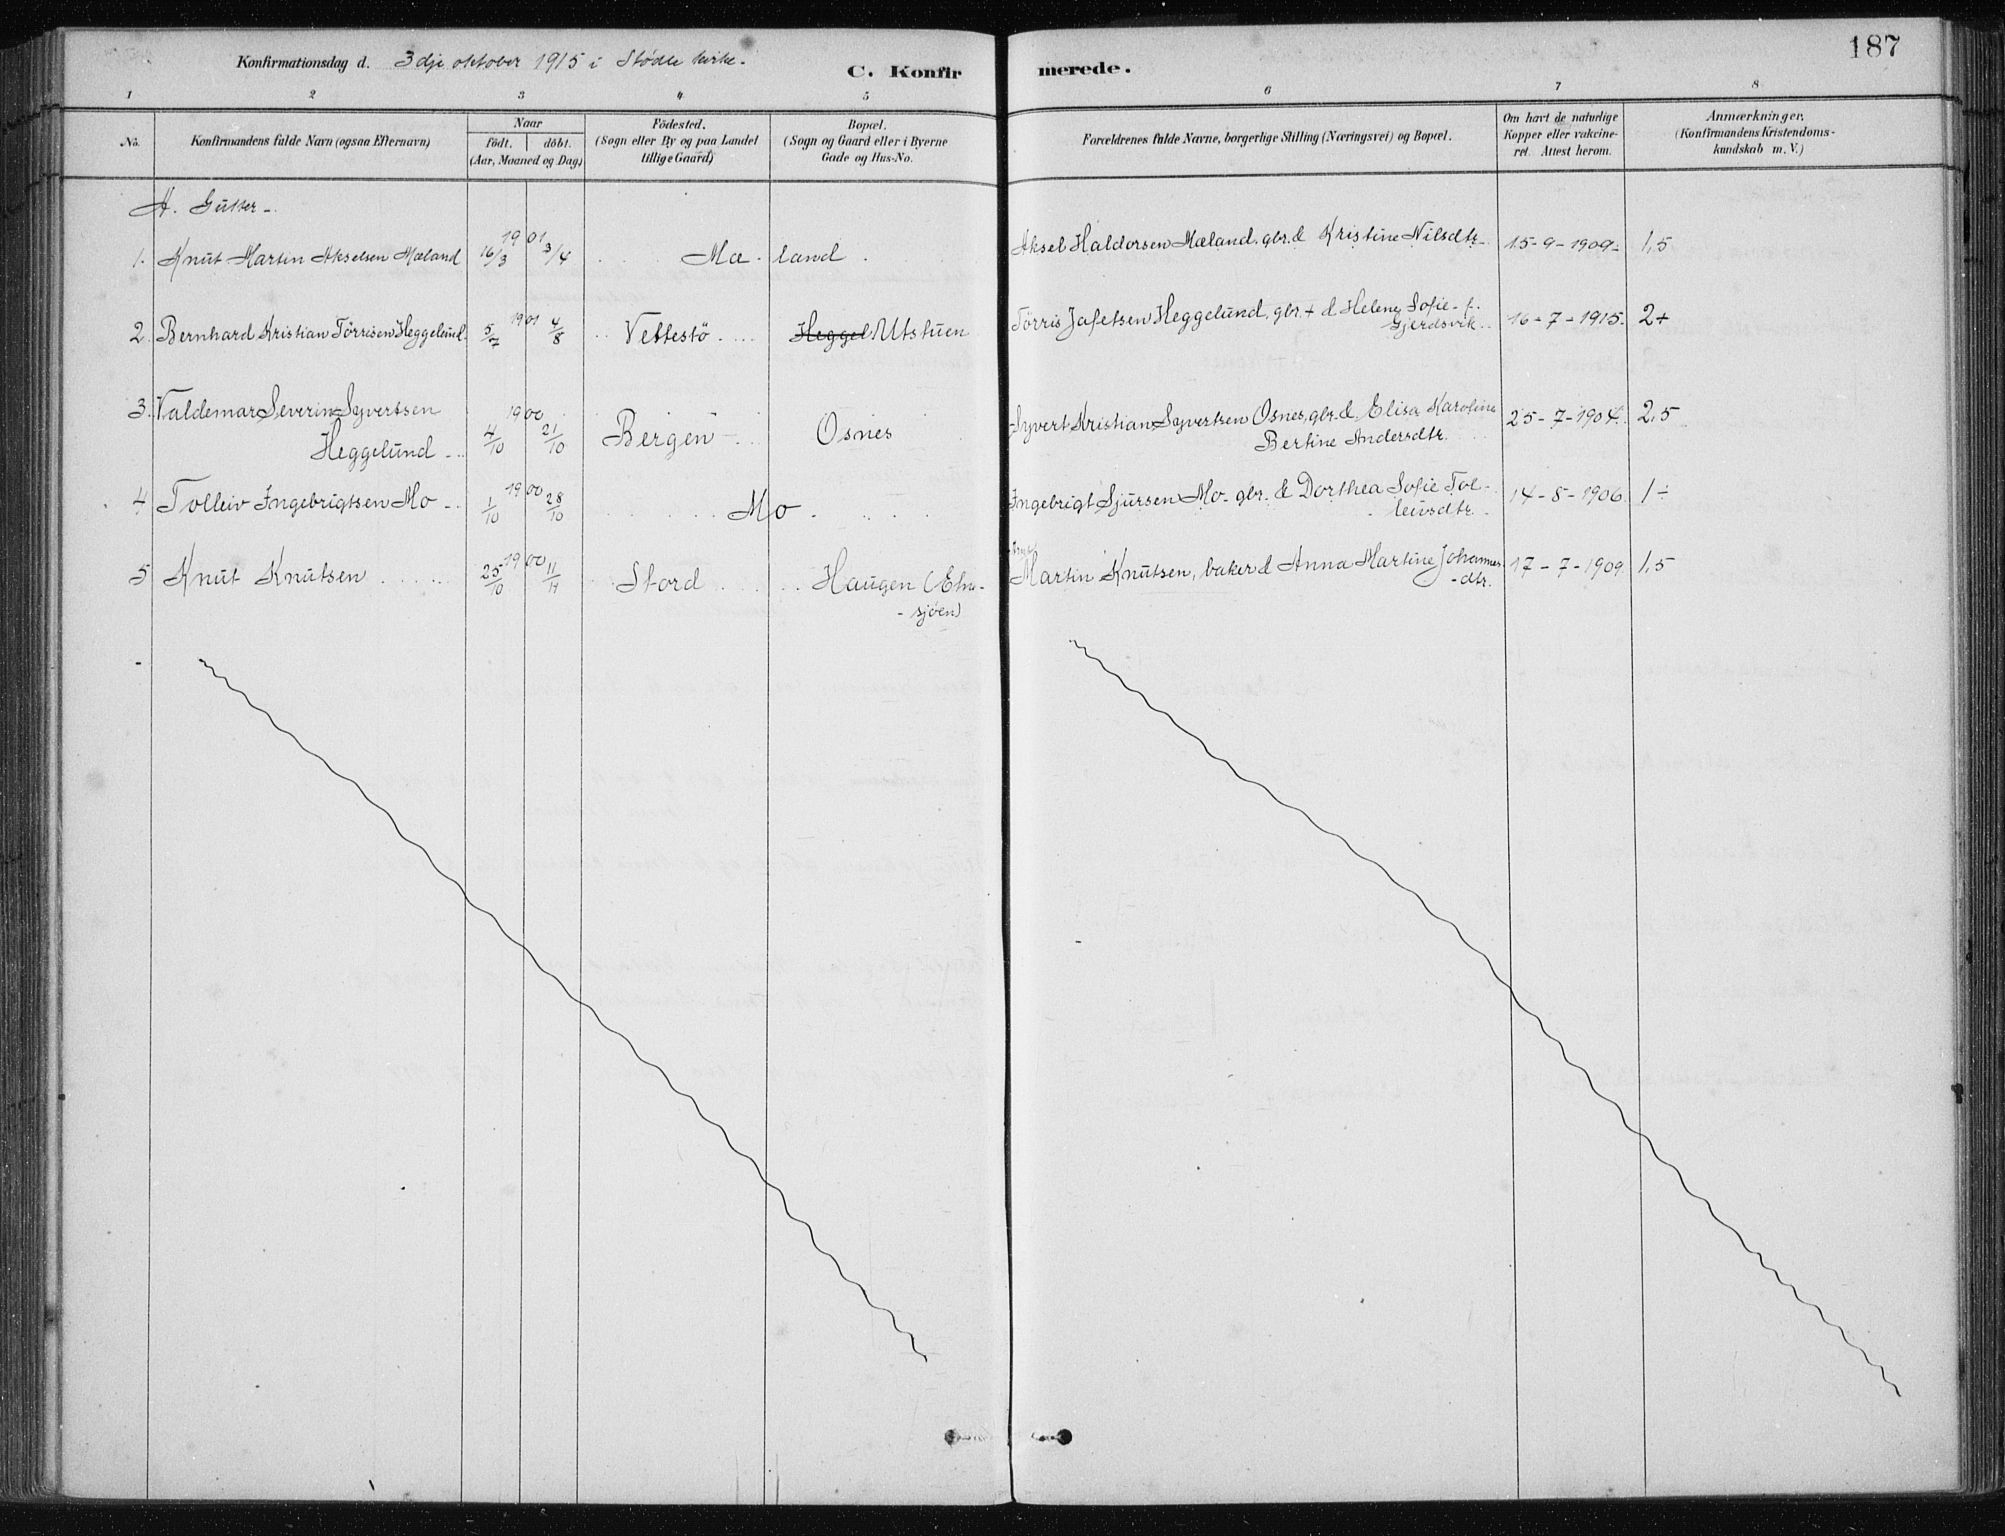 Konfirmationsdag d. 3dje oktober 1915 i Stødle kirke.
C. Konfirmerede.
187
1 2 3 4 5 6 7 8
No.
Konfirmandens fulde Navn (ogsaa Efternavn)
Naar
födt. döbt.
(Aar, Maaned og Dag)
Födested.
(Sogn eller By og paa Landet
tillige Gaard)
Bopæl.
(Sogn og Gaard eller i Byerne
Gade og Hus-No.
Forældrenes fulde Navne, borgerlige Stilling (Næringsvei) og Bopæl.
Om havt de naturlige
Kopper eller vakcine-
ret. Attest herom.
Anmærkninger.
(Konfirmandens Kristendoms-
kundskab m. V.)
A. Gutter -
1. Knut Martin Akselsen Mæland 1901 16/3 3/4 Mæland Aksel Haldorsen Mæland. gbr. & Kristine Nilsdtr. 15-9-1909- 1,5
2. Bernhard Kristian Törrisen Heggelund. 1901 5/7 4/8 Vettestö Heggel Utstuen Törris Jafetsen Heggelund, gbr. + & Helene Sofie f.
Gjerdsvik. 16-7-1915. 2+
3. Valdemar Severin Syvertsen
Heggelund 1900 4/10 21/10 Bergen Osnes Syvert Kristian Syvertsen Osnes, gbr. & Elisa Karoline
Bertine Andersdtr. 25-7-1904. 2,5
4. Tolleiv Ingebrigtsen Mo 1900 1/10 28/10 Mo Ingebrigt Sjursen Mo. gbr. & Dorthea Sofie Tol-
leivsdtr. 14-8-1906. 1÷
5 Knut Knutsen 1900 25/10 11/11 Stord Haugen (Etne-
-sjøen) Martin Knutsen, baker & Anna Martine Johannes
-dtr. 17-7-1909. 1,5